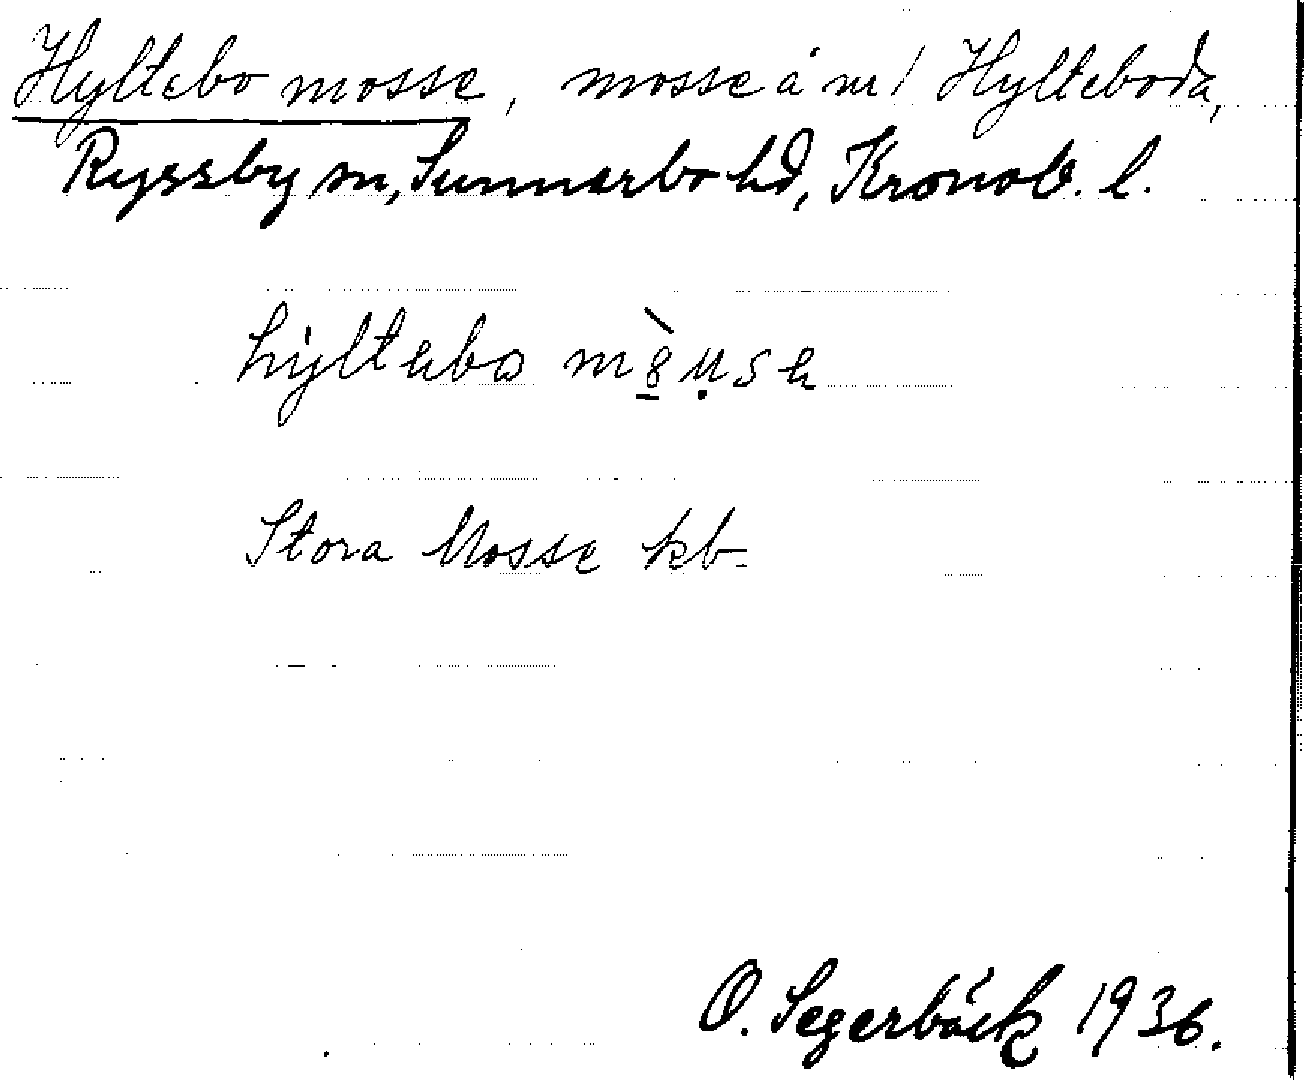 Hyltebo mosse, mosse å m/ Hylteboda,
Ryssby sn, Sunnerbo hd, Kronob. l.
Stora Mosse kb
O. Segerbäck 1936.